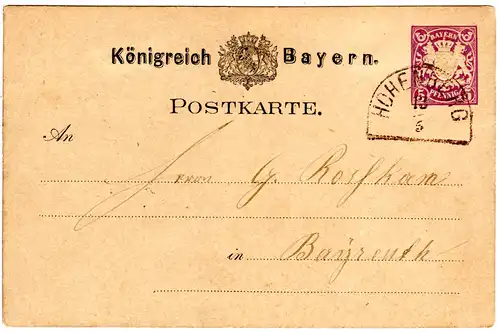 Königreich Bayern.
POSTKARTE.
5 BAYERN 5
5 PFENNIG 5
An
Herrn G. Roßkam
in Bayreuth